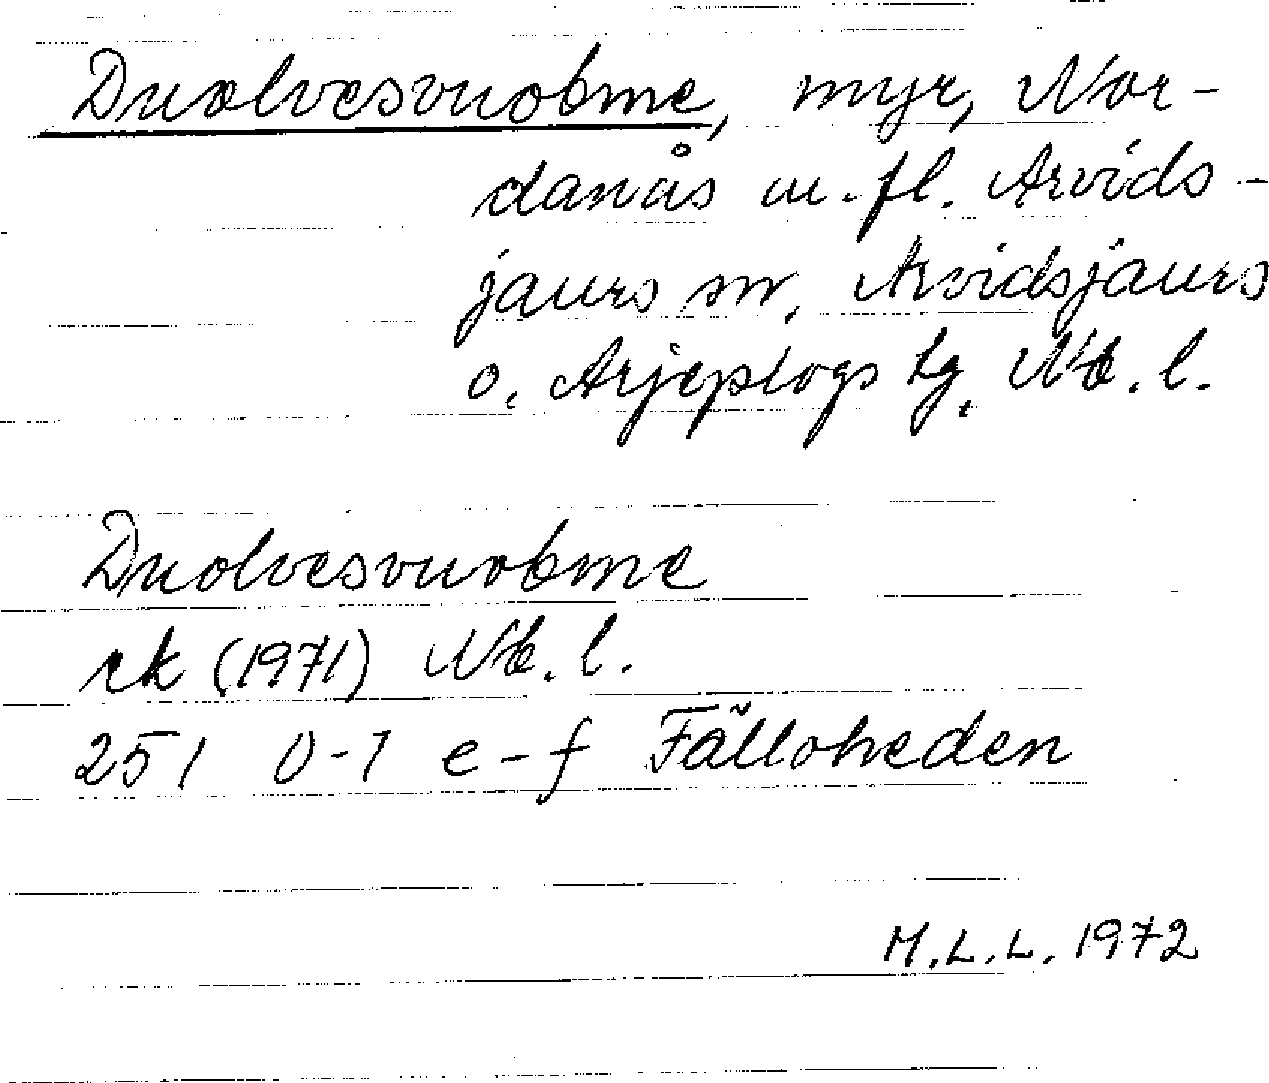 Duolvesvuobme, myr, Nor-
danås m.fl. Arvids-
jaurs sn, Arvidsjaurs
o. Arjeplogs tg, Nb. l.
Duolvesvuobme
rk (1971) Nb. l.
25 I 0-1 e-f Fälloheden
M.L.L. 1972